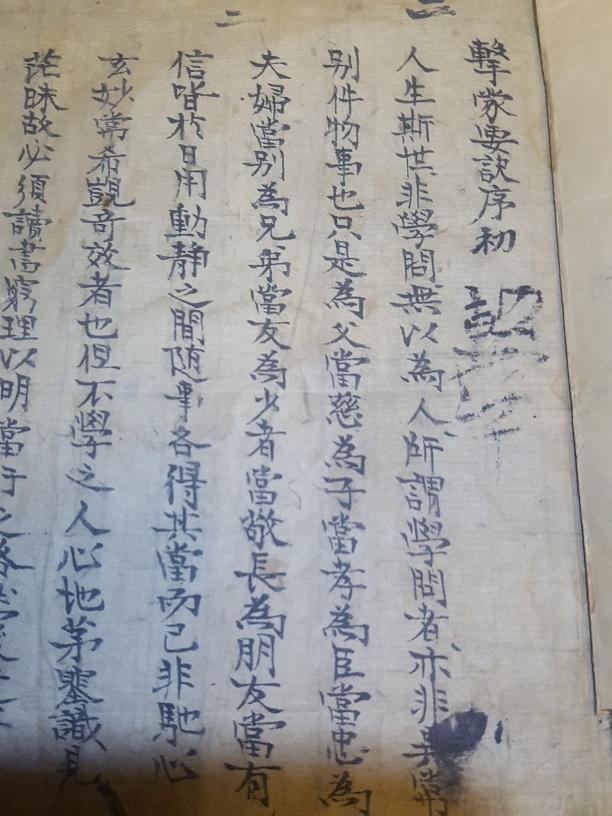 二
二
擊蒙要訣序初
人生斯世非學問無以為人所謂學問者亦非異常
別件物事也只是為父當慈為子當孝為臣當忠為
夫婦當別為兄弟當友為少者當敬長為朋友當有
信皆於日用動靜之間随事各得其當而已非馳心
玄妙常希覬奇效者也但不學之人心地茅塞識見
茫昧故必須讀書窮理以明當行之路